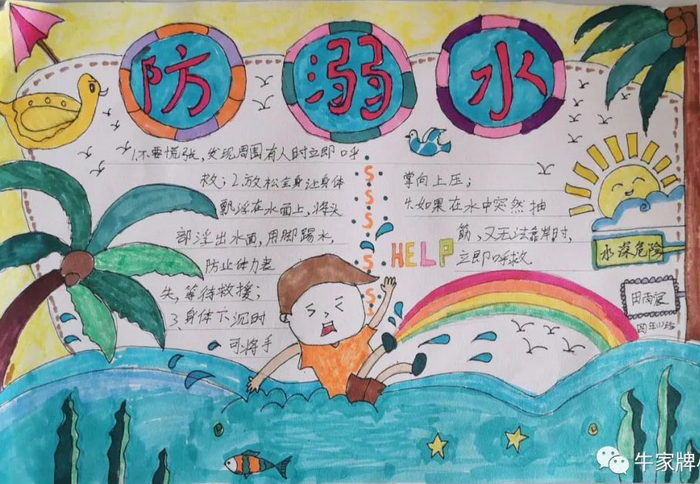 防溺水
1.不要慌张,发现周围有人时立即呼
救;2.放松全身让身体
飘浮在水面上,将头
部浮出水面,用脚踢水,
防止体力丧
失,等待救援;
3.身体下沉时
可将手
掌向上压;
4.如果在水中突然抽
筋,又无法靠岸时,
立即呼救
SSSSSS
HELP
水深危险
牛家牌